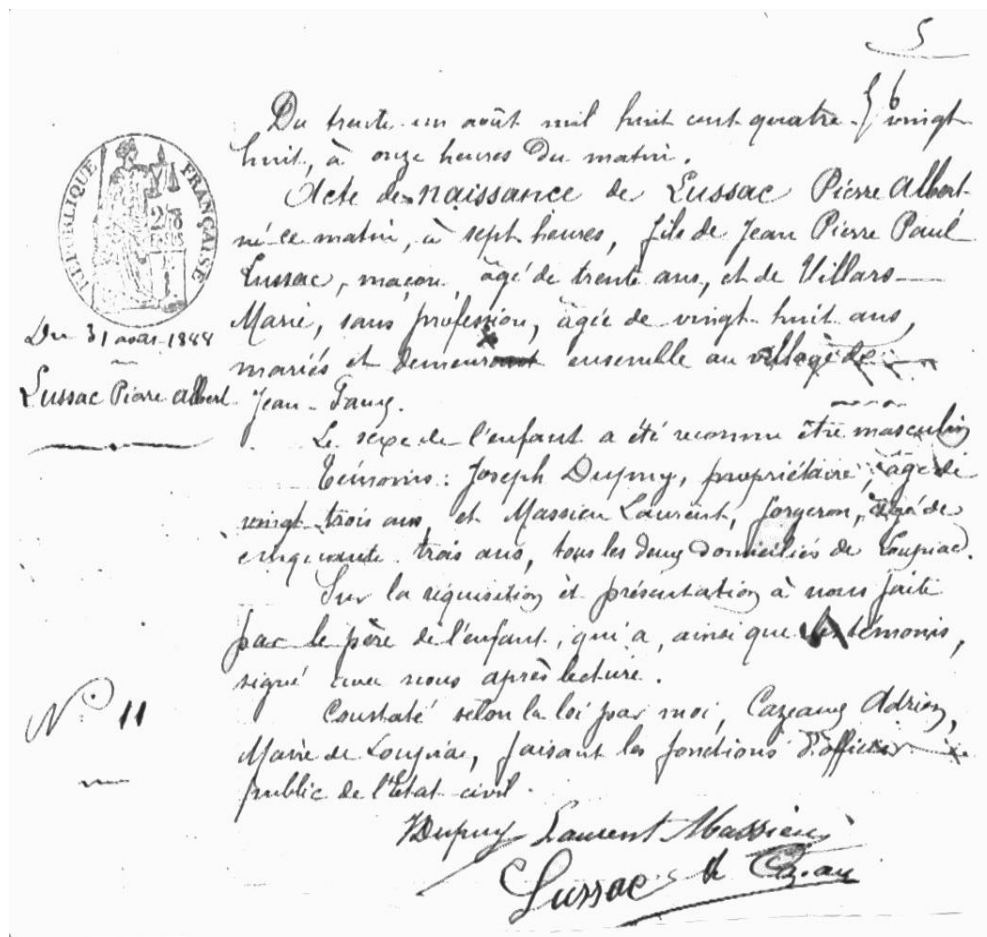 5
6
Du trente un août mil huit cent quatre-vingt
huit, à onze heures du matin.
Acte de naissance de Lussac Pierre Albert
né ce matin, à sept heures, fils de Jean Pierre Paul
Lussac, maçon, âgé de trente ans, et de Villars
Marie, sans profession, âgée de vingt-huit ans,
mariés et demeurant ensemble au village de
Jean-Faux.
Le sexe de l'enfant a été reconnu être masculin
Témoins: Joseph Dupuy, propriétaire, âgé de
vingt-trois ans, et Massieu Laurent, forgeron, âgé de
cinquante-trois ans, tous les deux domiciliés de Loupiac.
Sur la réquisition et présentation à nous faite
par le père de l'enfant, qui a, ainsi que les témoins,
signé avec nous après lecture.
Constaté selon la loi par moi, Cazeaux Adrien,
Maire de Loupiac, faisant les fonctions d'officier
public de l'Etat-civil.
JDupuy Laurent Massieu
Lussac
RÉPUBLIQUE FRANÇAISE
Du 31 août 1888
Lussac Pierre Albert
N° 11